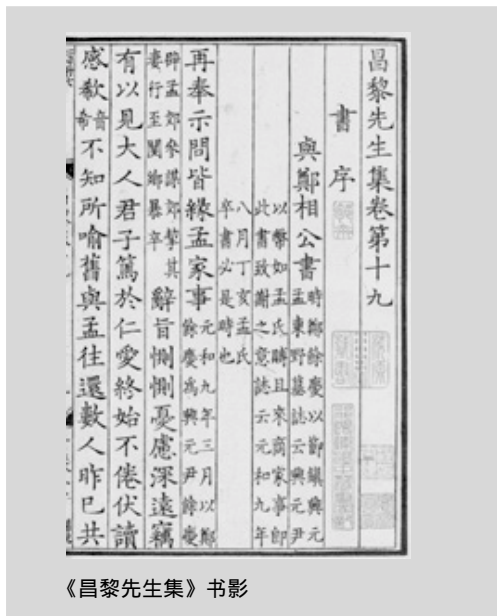 昌黎先生集卷第十九
書 序
與鄭相公書 時鄭餘慶以節鎮興元
孟東野墓誌云興元尹
以幣如孟氏賻且來商家事即
此書致謝之意誌云元和九年
八月丁亥孟氏
卒書必是時也
再奉示問皆緣孟家事 元和九年三月以鄭
餘慶為興元尹餘慶
辟孟郊參謀郊挈其
妻行至閿鄉暴卒 辭旨惻惻憂慮深遠竊
有以見大人君子篤於仁愛終始不倦伏讀
感欷音希不知所喻舊與孟往還數人昨已共
《昌黎先生集》书影